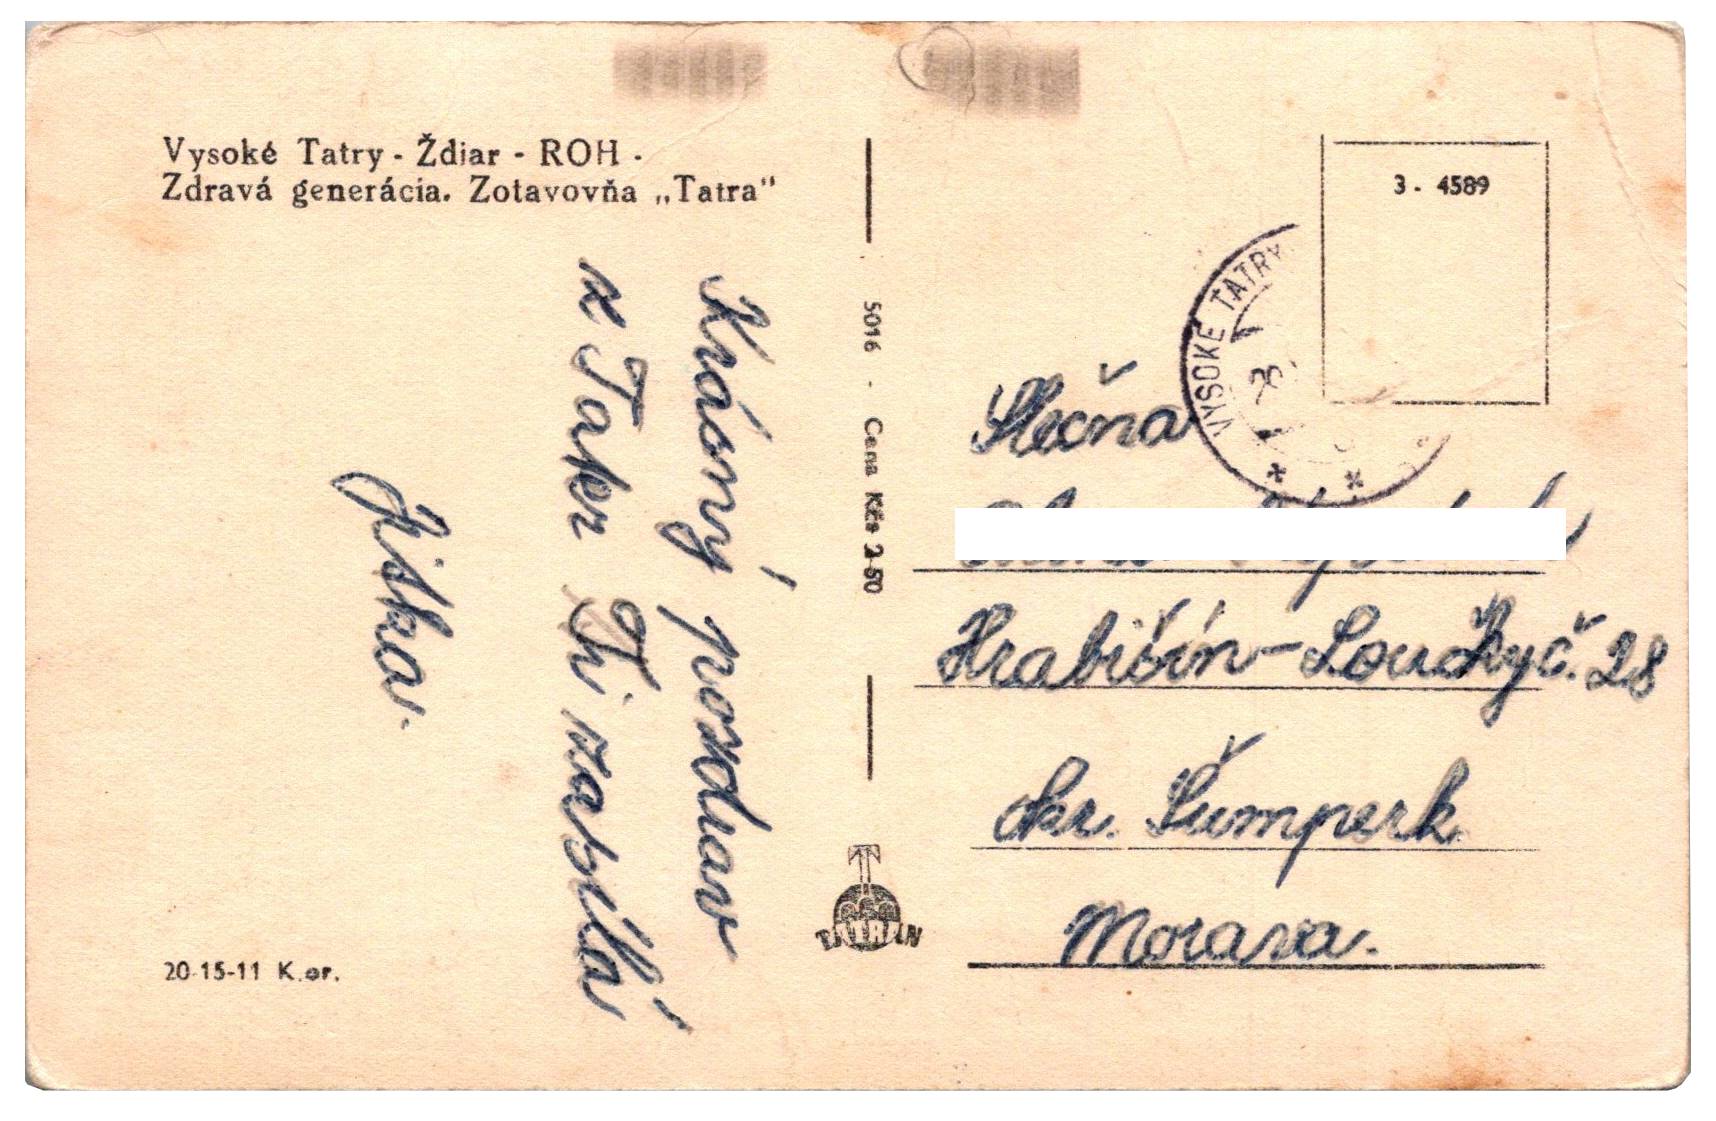 Vysoké Tatry - Ždiar - ROH -
Zdravá generácia. Zotavovňa „Tatra"
Krásný pozdrav
z Tater Ti zasílá
Jiska.
20-15-11 K.or.
5016 - Cena Kčs
TATRAN
3 - 4589
VYSOKÉ TATRY
Slečna
Hrabišín-Loučky č. 28
okr. Šumperk
Morava.